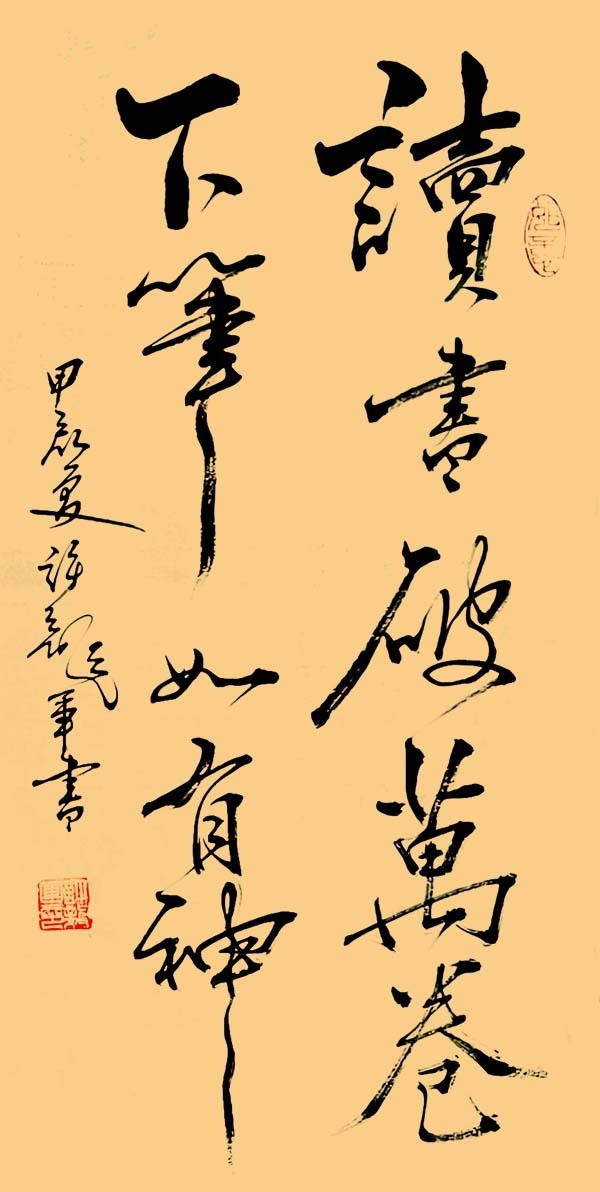 讀書破萬卷
下筆如有神
甲辰夏 軍書